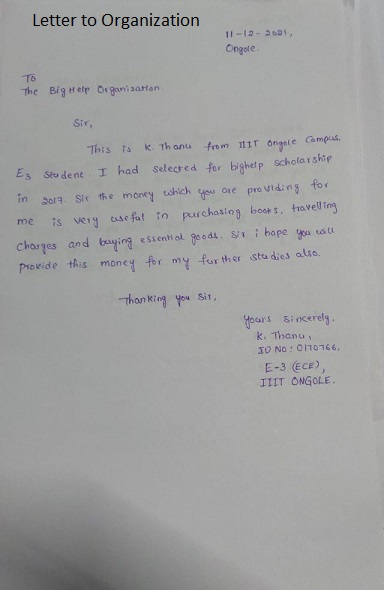 Letter to Organization
11-12-2021,
Ongole.
To
The Big Help Organisation.
Sir,
This is K. Thanu from IIIT Ongole Campus,
E3 Student. I had selected for bighelp scholarship
in 2017. Sir the money which you are providing for
me is very useful in purchasing books, travelling
charges and buying essential goods. Sir i hope you will
provide this money for my further studies also.
Thanking you Sir,
Yours Sincerely,
K. Thanu,
ID NO: O170766,
E-3 (ECE),
IIIT ONGOLE.